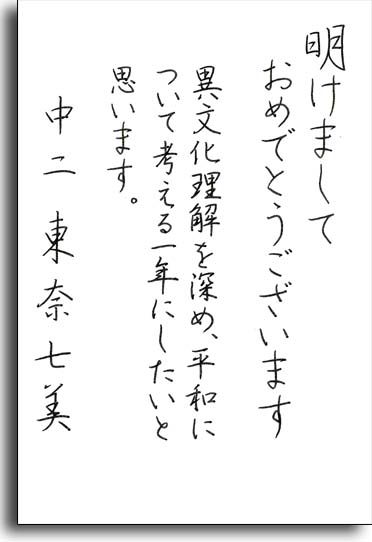 明けまして
おめでとうございます
異文化理解を深め、平和に
ついて考える一年にしたいと
思います。
中二 東奈七美